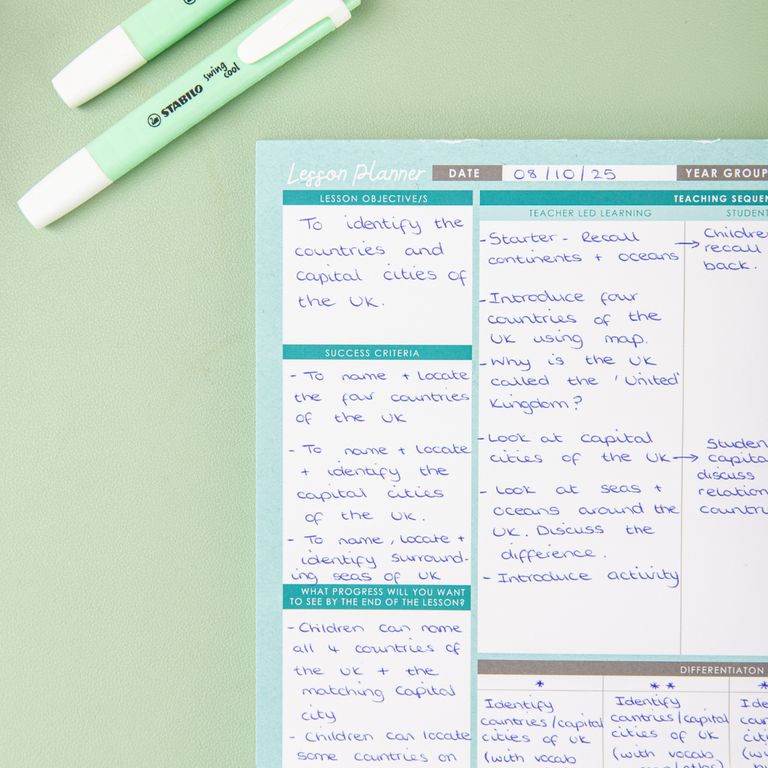 STABILO swing cool
Lesson Planner
DATE
08/10/25
YEAR GROUP
LESSON OBJECTIVE/S
To identify the
countries and
capital cities of
the UK.
SUCCESS CRITERIA
- To name + locate
the four countries
of the UK
- To name + locate
+ identify the
capital cities
of the UK.
- To name, locate +
identify surround-
ing seas of UK
WHAT PROGRESS WILL YOU WANT
TO SEE BY THE END OF THE LESSON?
- Children can name
all 4 countries of
the UK + the
matching capital
city
- Children can locate
some countries on
TEACHING SEQUEN
TEACHER LED LEARNING
- Starter - Recall
continents + oceans
- Introduce four
countries of the
UK using map.
- Why is the UK
called the 'United'
Kingdom?
- Look at capital
cities of the UK →
- Look at seas +
oceans around the
UK. Discuss the
difference.
- Introduce activity
STUDENT
→ Childre
recall
back.
Studen
capita
discuss
relation
countr
DIFFERENTIATON
*
Identify
countries/capital
cities of UK
(with vocab
* *
Identify
countries/capital
cities of UK
(with vocab
*
Ide
coun
citi
(wi